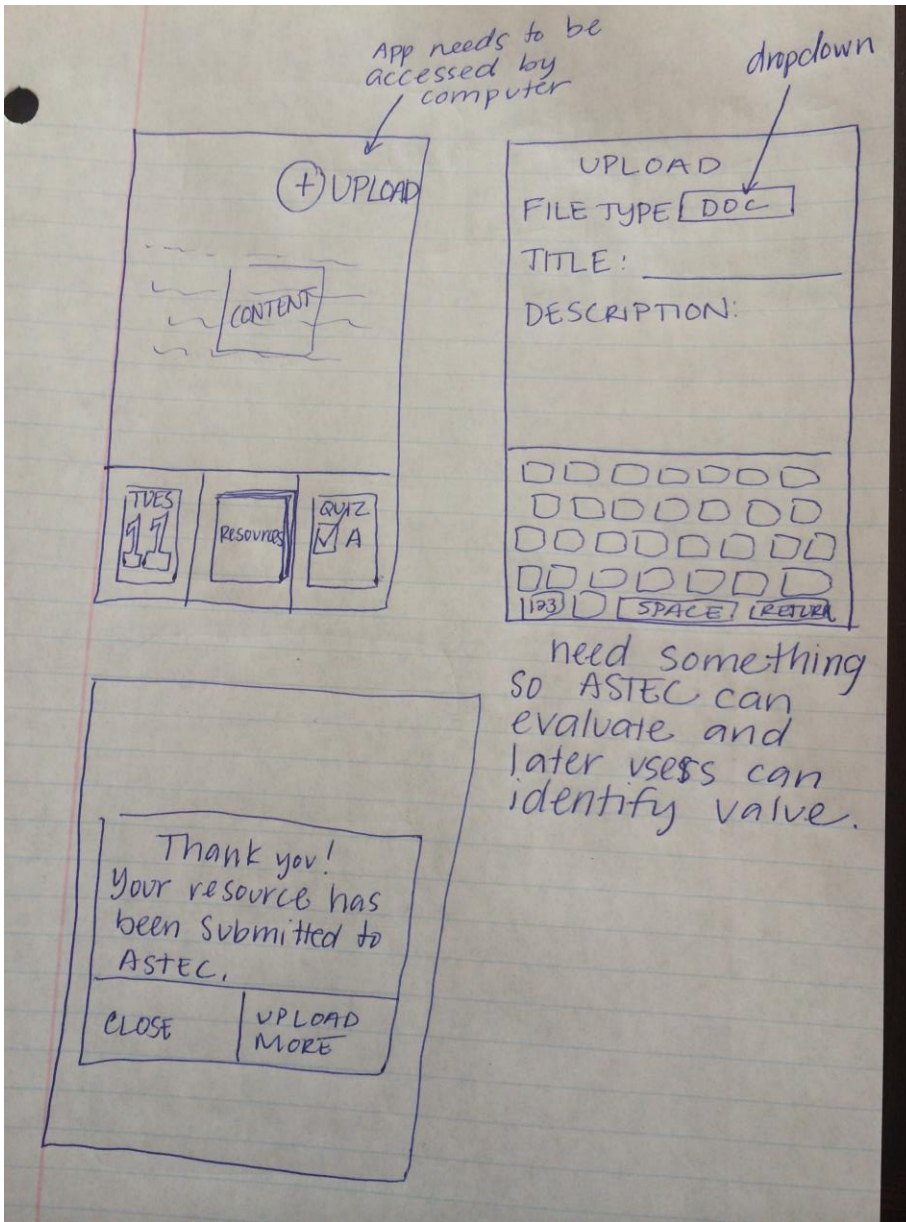 App needs to be
accessed by
computer
dropdown
+ UPLOAD
CONTENT
TUES
11
Resources
QUIZ
A
UPLOAD
FILE TYPE DOC
TITLE:
DESCRIPTION:
123 SPACE RETURN
need something
so ASTEC can
evaluate and
later users can
identify value.
Thank you!
Your resource has
been submitted to
ASTEC.
CLOSE
UPLOAD
MORE